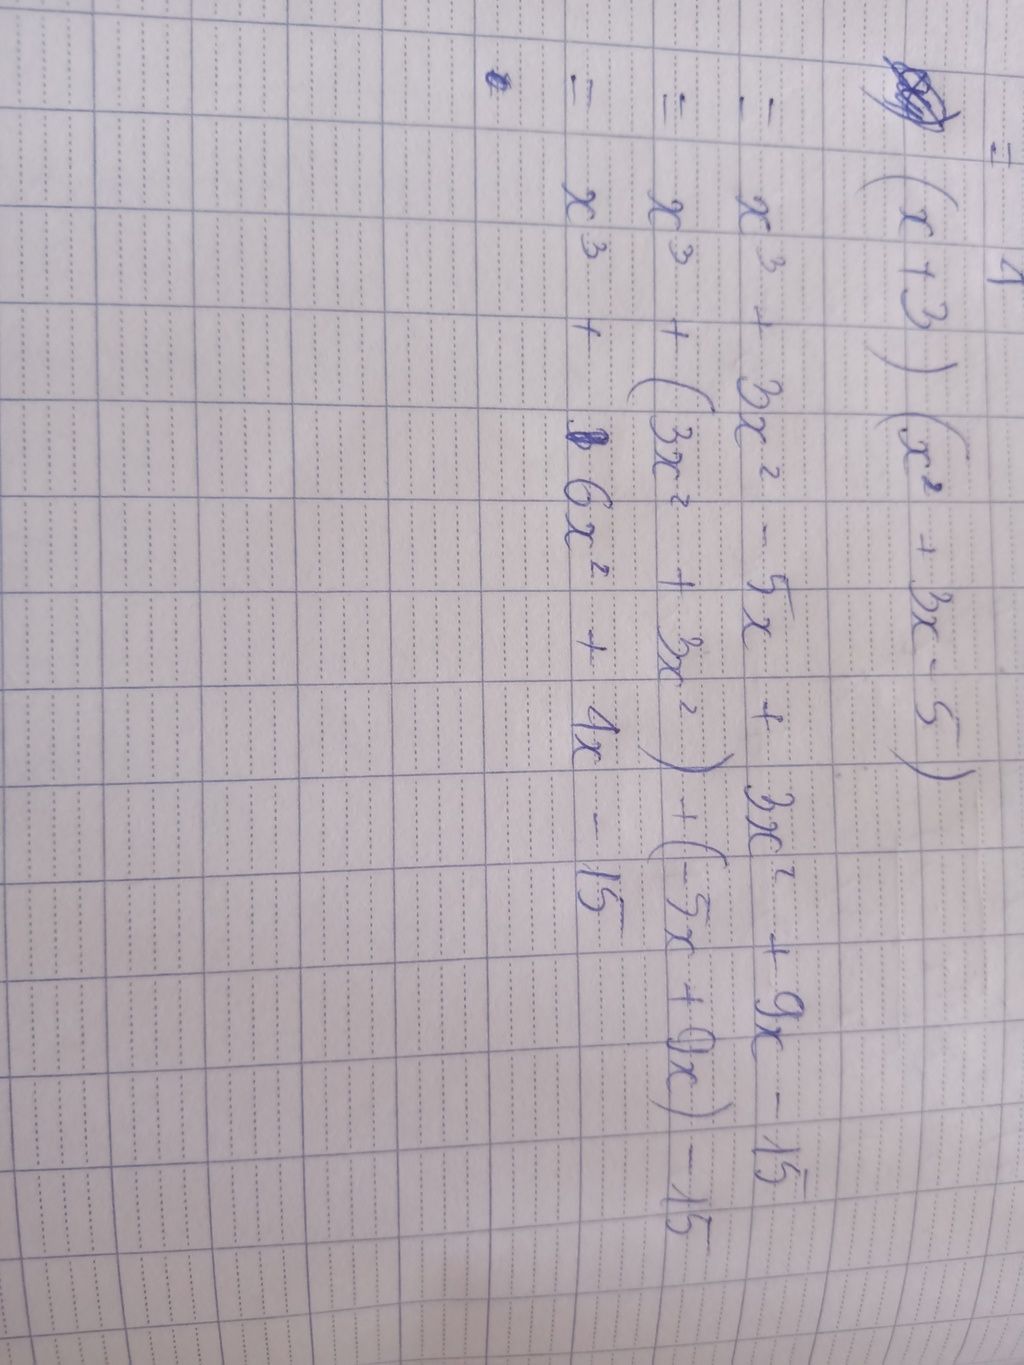 = 1
(x + 3) (x² + 3x - 5)
= x³ + 3x² - 5x + 3x² + 9x - 15
= x³ + (3x² + 3x²) + (-5x + 9x) - 15
= x³ + 6x² + 4x - 15